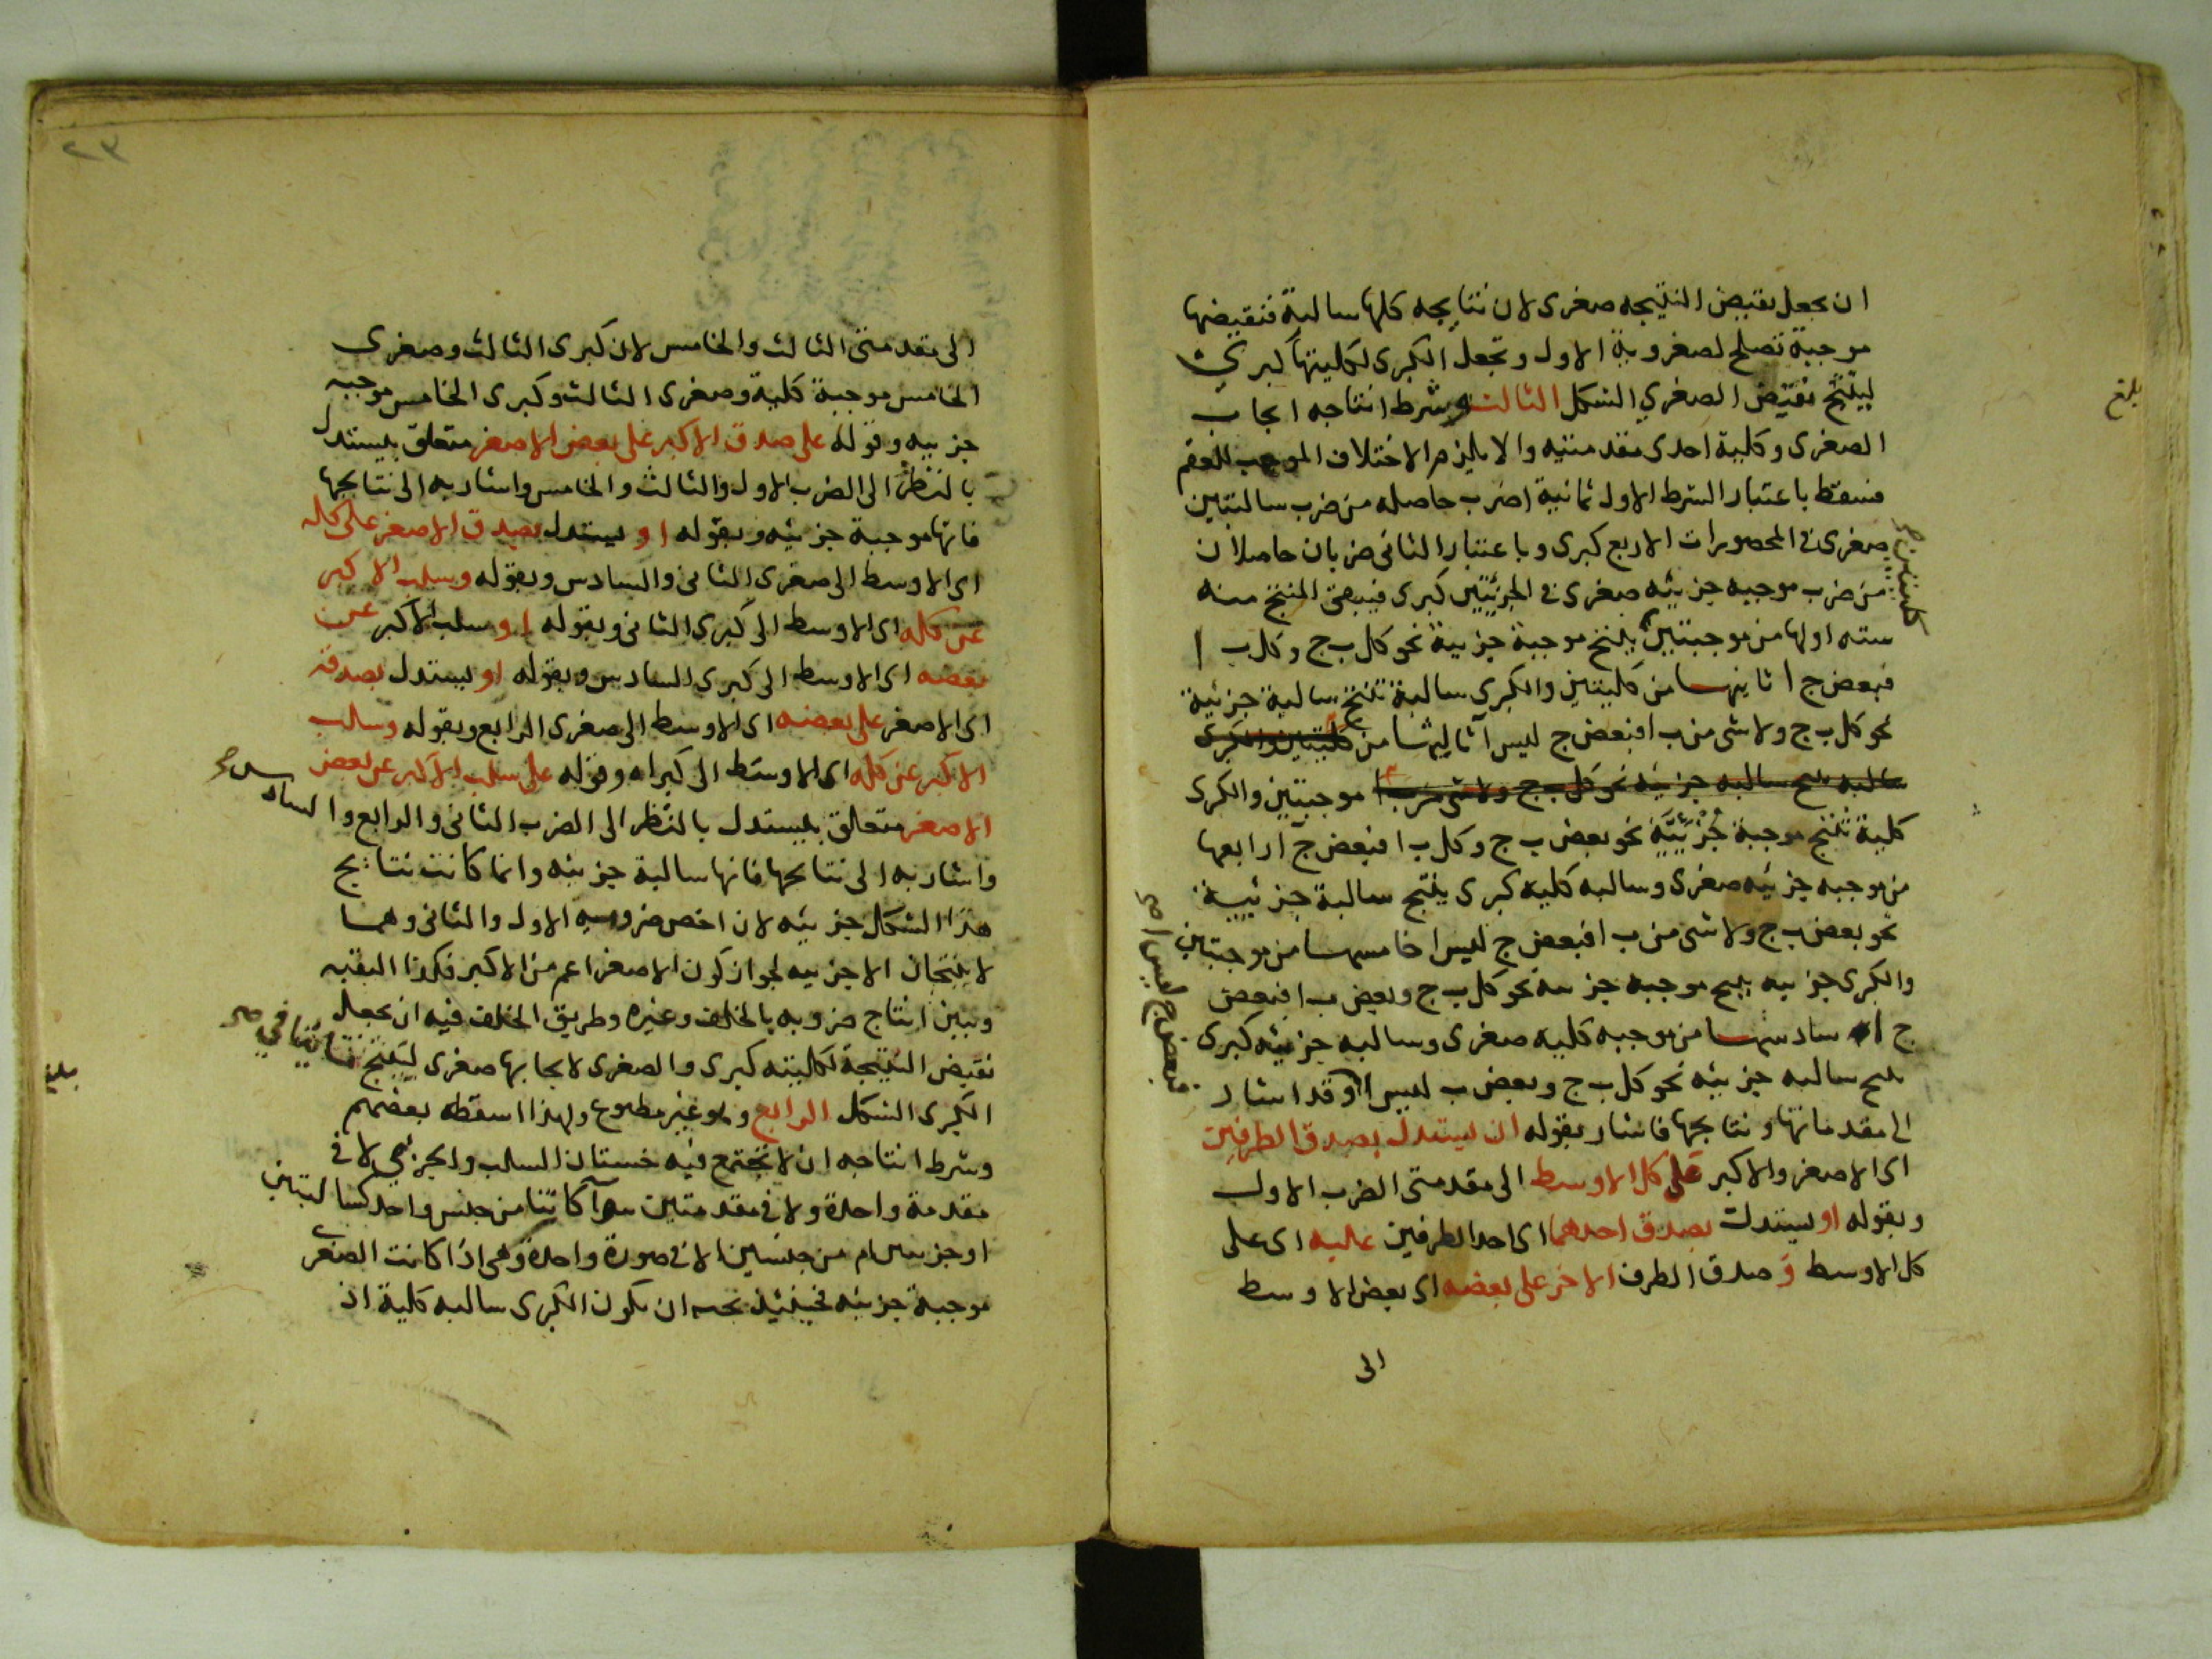 ان يجعل نقيض النتيجه صغرى لان نتايجه كلها سالبة فنقيضها
موجبة تصلح لصغروية الاول وتجعل الكبرى لكليتها كبرى
لينتج نقيض الصغرى الشكل الثالث وشرط انتاجه ايجاب
الصغرى وكلية احدى مقدمتيه والا يلزم الاختلاف الموجب للعقم
فسقط باعتبار الشرط الاول ثمانية اضرب حاصله من ضرب سالبتين
صغرى في المحصورات الاربع كبرى وباعتبار الثانى ضربان حاصلان
من ضرب موجبه جزئيه صغرى في الجزئيتين كبرى فيبقى المنتج منه
سته اولها من موجبتين ينتج موجبة جزيية نحو كل ب ج وكل ب ا
كليتين صح
فبعض ج ا ثانيهما من كليتين والكبرى سالبة تنتج سالبة جزئية
نحو كل ب ج ولا شى من ب ا فبعض ج ليس ا ثالثها من كليتين والكبرى
سالبه ينتج سالبه جزئيه نحو كل ب ج ولا شى من ب ا موجبتين والكبرى
كلية تنتج موجبة جزئيّة نحو بعض ب ج وكل ب ا فبعض ج ا رابعها
من موجبه جزئيه صغرى وسالبه كلية كبرى ينتج سالبة جزئيية
نحو بعض ب ج ولا شى من ب ا فبعض ج ليس ا خامسها من موجبتين
والكبرى جزييه ينتج موجبه جزييه نحو كل ب ج وبعض ب ا فبعض
ج ا سادسها من موجبه كليه صغرى وسالبه جزئيه كبرى
ينتج سالبه جزئيه نحو كل ب ج وبعض ب ليس ا وقد اشار
فبعض ج ليس ا صح
الى مقدماتها ونتايجها فاشار بقوله ان يستدل بصدق الطرفين
اى الاصغر والاكبر على كل الاوسط الى مقدمتى الضرب الاول
وبقوله او يستدل بصدق احدهما اى احد الطرفين عليه اى على
كل الاوسط وصدق الطرف الاخر على بعضه اى بعض الاوسط
الى
بلغ
٢٣
الى مقدمتى الثالث والخامس لان كبرى الثالث وصغرى
الخامس موجبة كلية وصغرى الثالث وكبرى الخامس موجبه
جزييه وقوله على صدق الاكبر على بعض الاصغر متعلق بيستدل
بالنظر الى الضرب الاول والثالث والخامس واشار به الى نتايجها
فانها موجبة جزئيه وبقوله او يستدل بصدق الاصغر على كله
اى الاوسط الى صغرى الثانى والسادس وبقوله وسلب الاكبر
عن كله اى الاوسط الى كبرى الثانى وبقوله او سلب الاكبر عن
بعضه اى الاوسط الى كبرى السادس وبقوله او يستدل بصدقه
اى الاصغر على بعضه اى الاوسط الى صغرى الرابع وبقوله وسلب
الاكبر عن كله اى الاوسط الى كبراه وقوله على سلب الاكبر عن بعض
الاصغر متعلق بيستدل بالنظر الى الضرب الثانى والرابع والسادس صح
واشار به الى نتايجها فانها سالبة جزئيه وانما كانت نتايج
هذا الشكل جزئيه لان اخص ضروبه الاول والثانى وهما
لا ينتجان الا جزييه لجواز كون الاصغر اعم من الاكبر فكذا البقيه
وبين انتاج ضروبه بالخلف وغيره وطريق الخلف فيه ان يجعل
نقيض النتيجة لكليته كبرى والصغرى لايجابها صغرى لينتج ما ينافي صح
الكبرى الشكل الرابع وهو غير مطبوع ولهذا اسقطه بعضهم
وشرط انتاجه ان لا تجتمع فيه خستان السلب والجزئي لا في
مقدمة واحدة ولا في مقدمتين سوآ كانتا من جنس واحد كسالبتين
او جزييتين ام من جنسين الا في صورة واحدة وهى اذا كانت الصغرى
موجبة جزئيه فحينئذ يجب ان يكون الكبرى سالبه كلية اذ
بلغ